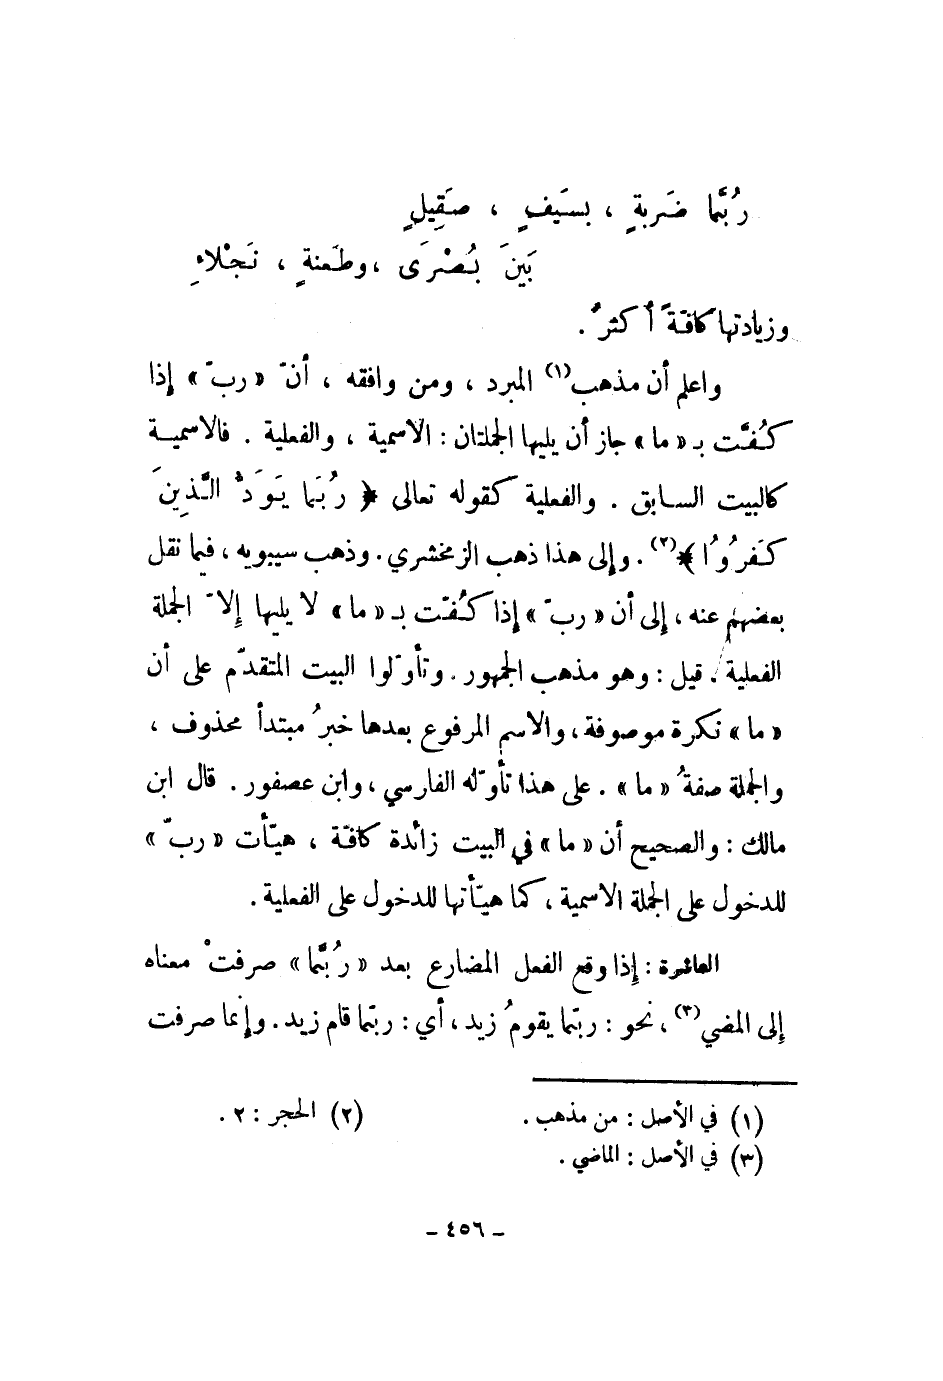 رُبَّما ضَربةٍ ، بسَيفٍ ، صَقِيلٍ
بَينَ بُصْرَى ، وطَعنةٍ ، نَجْلاءِ
وزيادتها كافّةً أكثرُ .
واعلم أن مذهب(١) المبرد ، ومن وافقه ، أنّ « ربّ » إذا
كُفَّت بـ « ما » جاز أن يليها الجملتان : الاسمية ، والفعلية . فالاسمية
كالبيت السابق . والفعلية كقوله تعالى ﴿ رُبَما يَوَدُّ الَّذِينَ
كَفَرُوُا ﴾(٢) . وإلى هذا ذهب الزمخشري . وذهب سيبويه ، فيما نقل
بعضهم عنه ، إلى أن « ربّ » إذا كُفّت بـ « ما » لا يليها إلاّ الجملة
الفعلية . قيل : وهو مذهب الجمهور . وتأوّلوا البيت المتقدّم على أن
« ما » نكرة موصوفة ، والاسم المرفوع بعدها خبرُ مبتدأ محذوف ،
والجملة صفةُ « ما » . على هذا تأوّله الفارسي ، وابن عصفور . قال ابن
مالك : والصحيح أن « ما » في البيت زائدة كافّة ، هيّأت « ربّ »
للدخول على الجملة الاسمية ، كما هيّأتها للدخول على الفعلية .
العاشرة : إذا وقع الفعل المضارع بعد « رُبَّما » صرفتْ معناه
إلى المضي(٣) ، نحو : ربّما يقومُ زيد ، أي : ربّما قام زيد . وإنما صرفت
(١) في الأصل : من مذهب . (٢) الحجر : ٢ .
(٣) في الأصل : الماضي .
- ٤٥٦ -